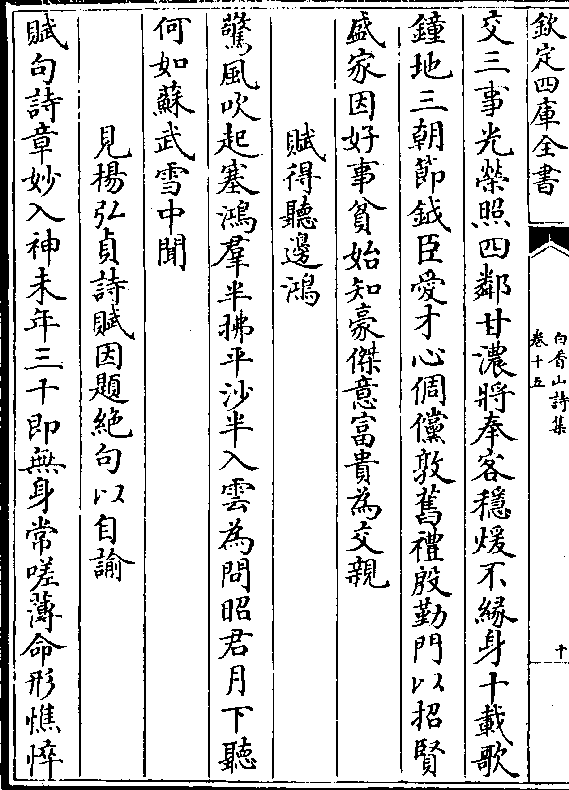 欽定四庫全書
白香山詩集
卷十五
十
交三事光榮照四鄰甘濃將奉客穩煖不緣身十載歌
鐘地三朝節鉞臣愛才心倜儻敦舊禮殷勤門以招賢
盛家因好事貧始知豪傑意富貴為交親
賦得聽邊鴻
驚風吹起塞鴻羣半拂平沙半入雲為問昭君月下聽
何如蘇武雪中聞
見楊弘貞詩賦因題絶句以自諭
賦句詩章妙入神未年三十即無身常嗟薄命形憔悴